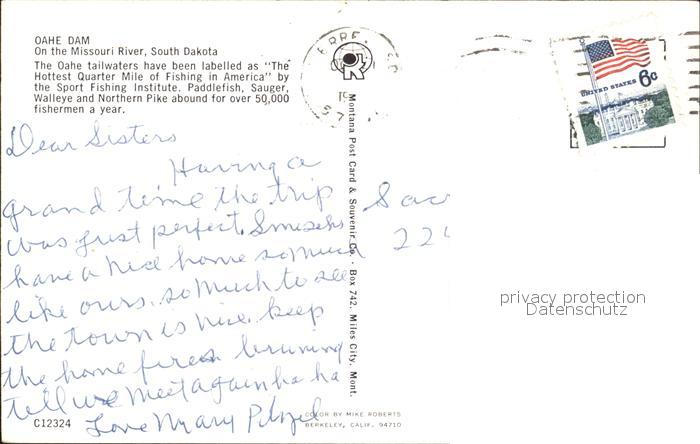 OAHE DAM
On the Missouri River, South Dakota
The Oahe tailwaters have been labelled as "The
Hottest Quarter Mile of Fishing in America" by
the Sport Fishing Institute. Paddlefish, Sauger,
Walleye and Northern Pike abound for over 50,000
fishermen a year.
Dear Sisters
Having a
grand time the trip
was just perfect.
have a nice home so much
like ours. so much to see
the town is nice. keep
the home fires burning
tell we meet again ha ha
Love Mary
C12324
COLOR BY MIKE ROBERTS
BERKELEY, CALIF. 94710
Montana Post Card & Souvenir Co. · Box 742, Miles City, Mont.
UNITED STATES 6c
privacy protection
Datenschutz